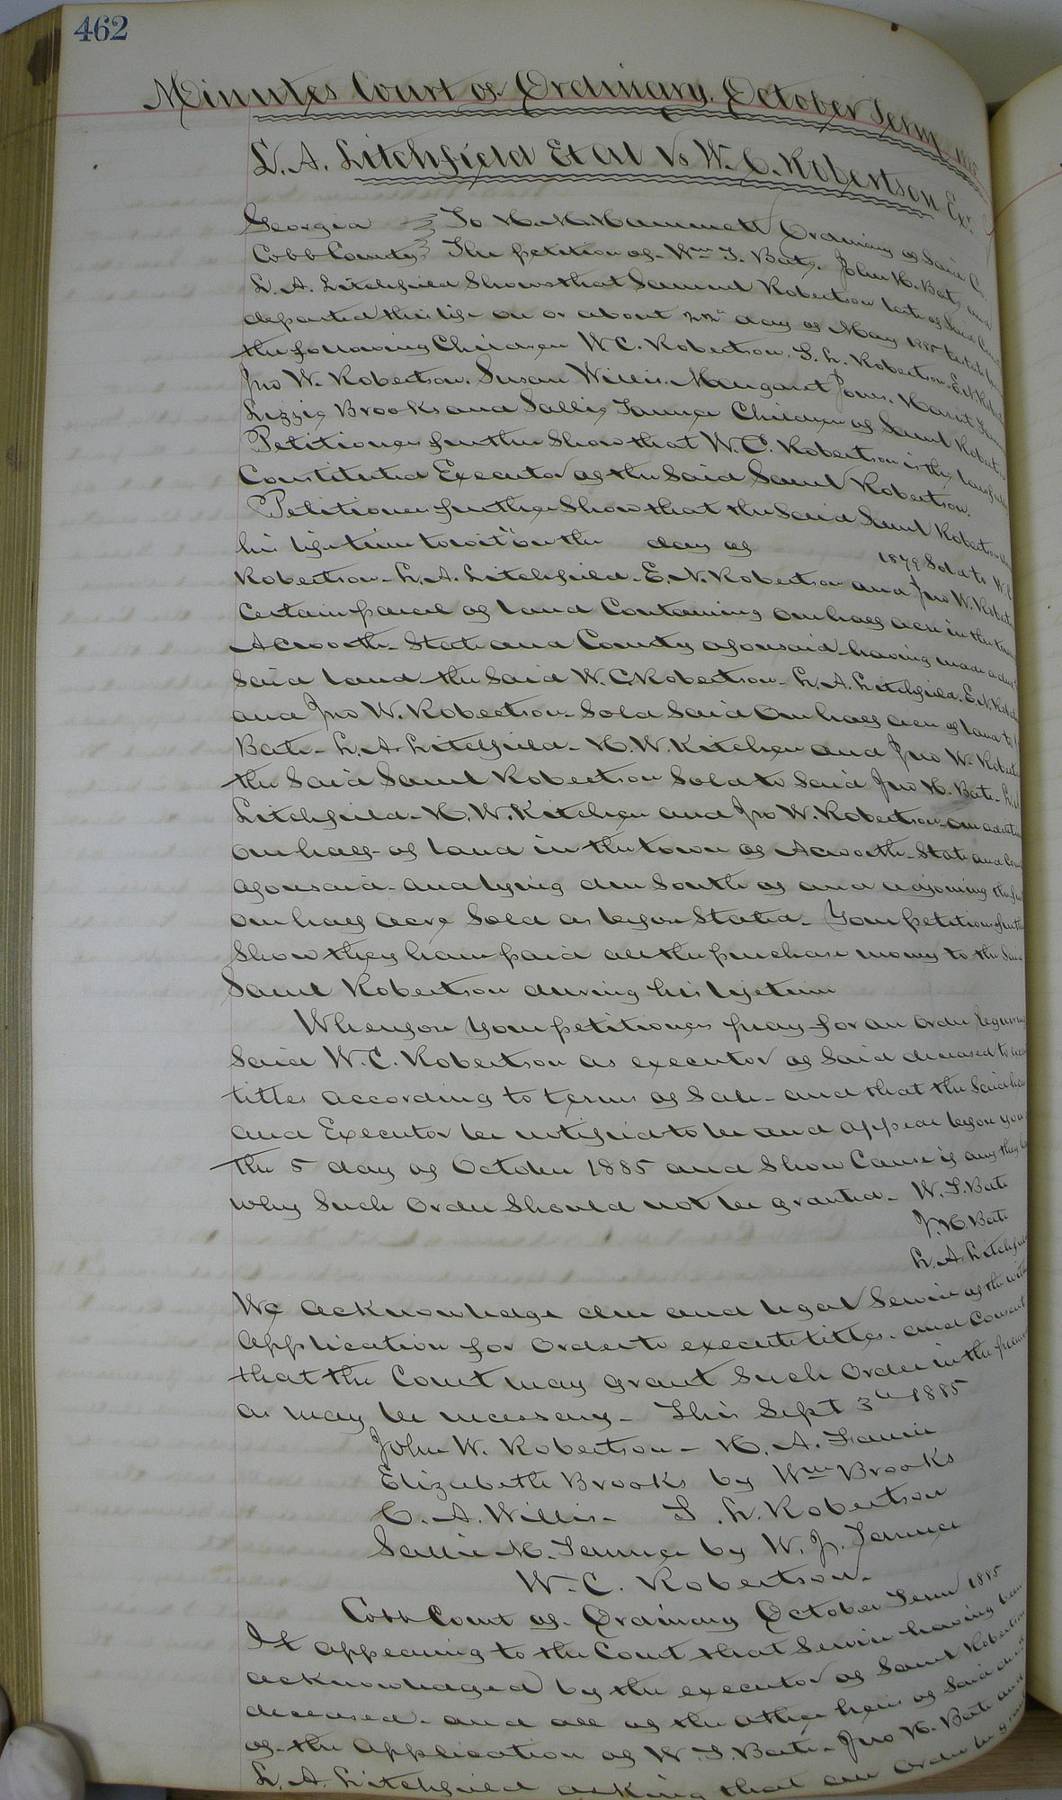 462
Minutes Court of Ordinary. October Term
L. A. Litchfield Et al Vs W. C. Robertson Exr.
Georgia To H. M. Hammett Ordinary of Said Co.
Cobb County The petition of Wm T. Bate, John H. Bate, and
L. A. Litchfield Shows that Samuel Robertson late of Said
departed this life on or about 22d day of May 1885
the following Children W C. Robertson. S. L. Robertson. E. N.
Jno W. Robertson. Susan Willis. Margaret Jones.
Lizzie Brooks and Sallie Tanner Children of Saml
Petitioners further Show that W. C. Robertson is the
Constituted Executor of the Said Saml Robertson.
Petitioners further Show that the Said Saml Robertson
his life time towit on the day of 1879 Sold to W. C.
Robertson - L. A. Litchfield - E. N. Robertson and Jno W.
Certain parcel of land Containing one half acre in the
Acworth - State and County aforesaid - having made
Said land the Said W. C. Robertson - L. A. Litchfield. E. N.
and Jno W. Robertson - Sold Said one half acre of land to
Bate - L. A. Litchfield - H. W. Kitchen and Jno W.
the Said Saml Robertson Sold to Said Jno H. Bate -
Litchfield - H. W. Kitchen and Jno W. Robertson one
one half of land in the town of Acworth - State and
aforesaid - and lying due South of and adjoining the
one half acre Sold as before Stated - Your petitioners
Show they have paid all the purchase money to the Said
Saml Robertson during his lifetime
Wherefore Your petitioners pray for an order requiring
Said W. C. Robertson as executor of Said deceased to
titles according to terms of Sale - and that the Said
and Executor be notified to be and appear before you
the 5 day of October 1885 and Show Cause if any they
why Such order Should not be granted - W. T. Bate
J. H. Bate
L. A. Litchfield
We acknowledge due and legal Service of the within
application for order to execute titles - and Consent
that the Court may grant Such Order in the
as may be necessary - This Sept 3d 1885
John W. Robertson - H. A.
Elizabeth Brooks by Wm Brooks
C. A. Willis - S. L. Robertson
Sallie M. Tanner by W. J. Tanner
W. C. Robertson -
Cobb Court of Ordinary October Term 1885
It appearing to the Court that Service having been
acknowledged by the executor of Saml Robertson
deceased - and all of the other heirs of Said
of the application of W T Bate - Jno H. Bate and
L. A. Litchfield asking that an Order be